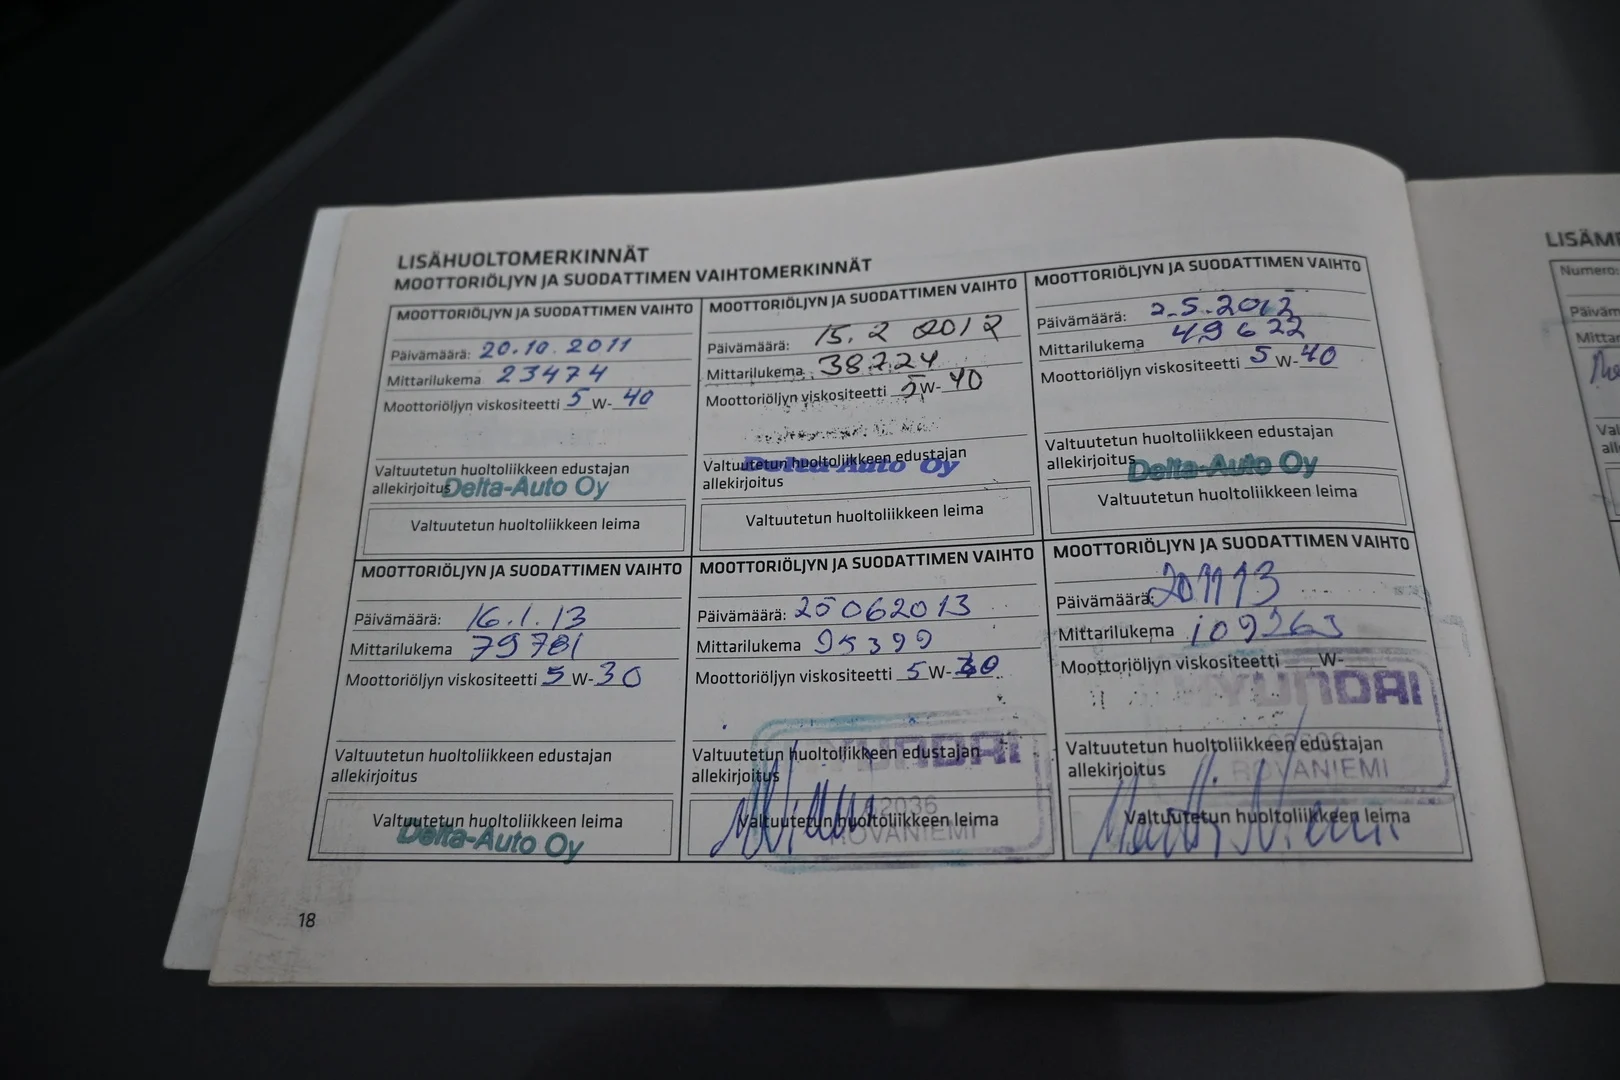 LISÄHUOLTOMERKINNÄT
MOOTTORIÖLJYN JA SUODATTIMEN VAIHTOMERKINNÄT
MOOTTORIÖLJYN JA SUODATTIMEN VAIHTO
Päivämäärä: 20.10.2011
Mittarilukema 23474
Moottoriöljyn viskositeetti 5 W-40
Valtuutetun huoltoliikkeen edustajan
allekirjoitus Delta-Auto Oy
Valtuutetun huoltoliikkeen leima
MOOTTORIÖLJYN JA SUODATTIMEN VAIHTO
Päivämäärä: 15.2 2012
Mittarilukema 38724
Moottoriöljyn viskositeetti 5W-40
Valtuutetun huoltoliikkeen edustajan
Delta-Auto Oy
allekirjoitus
Valtuutetun huoltoliikkeen leima
MOOTTORIÖLJYN JA SUODATTIMEN VAIHTO
Päivämäärä: 2.5.2012
Mittarilukema 49622
Moottoriöljyn viskositeetti 5 W-40
Valtuutetun huoltoliikkeen edustajan
allekirjoitus Delta-Auto Oy
Valtuutetun huoltoliikkeen leima
MOOTTORIÖLJYN JA SUODATTIMEN VAIHTO
Päivämäärä: 16.1.13
Mittarilukema 79781
Moottoriöljyn viskositeetti 5 W-30
Valtuutetun huoltoliikkeen edustajan
allekirjoitus
Valtuutetun huoltoliikkeen leima
Delta-Auto Oy
MOOTTORIÖLJYN JA SUODATTIMEN VAIHTO
Päivämäärä: 25062013
Mittarilukema 95399
Moottoriöljyn viskositeetti 5 W-30
Valtuutetun huoltoliikkeen edustajan
HYUNDAI
allekirjoitus
Valtuutetun huoltoliikkeen leima
ROVANIEMI
MOOTTORIÖLJYN JA SUODATTIMEN VAIHTO
Päivämäärä: 201113
Mittarilukema 109263
Moottoriöljyn viskositeetti W-
HYUNDAI
Valtuutetun huoltoliikkeen edustajan
allekirjoitus
ROVANIEMI
Valtuutetun huoltoliikkeen leima
18
Numero: